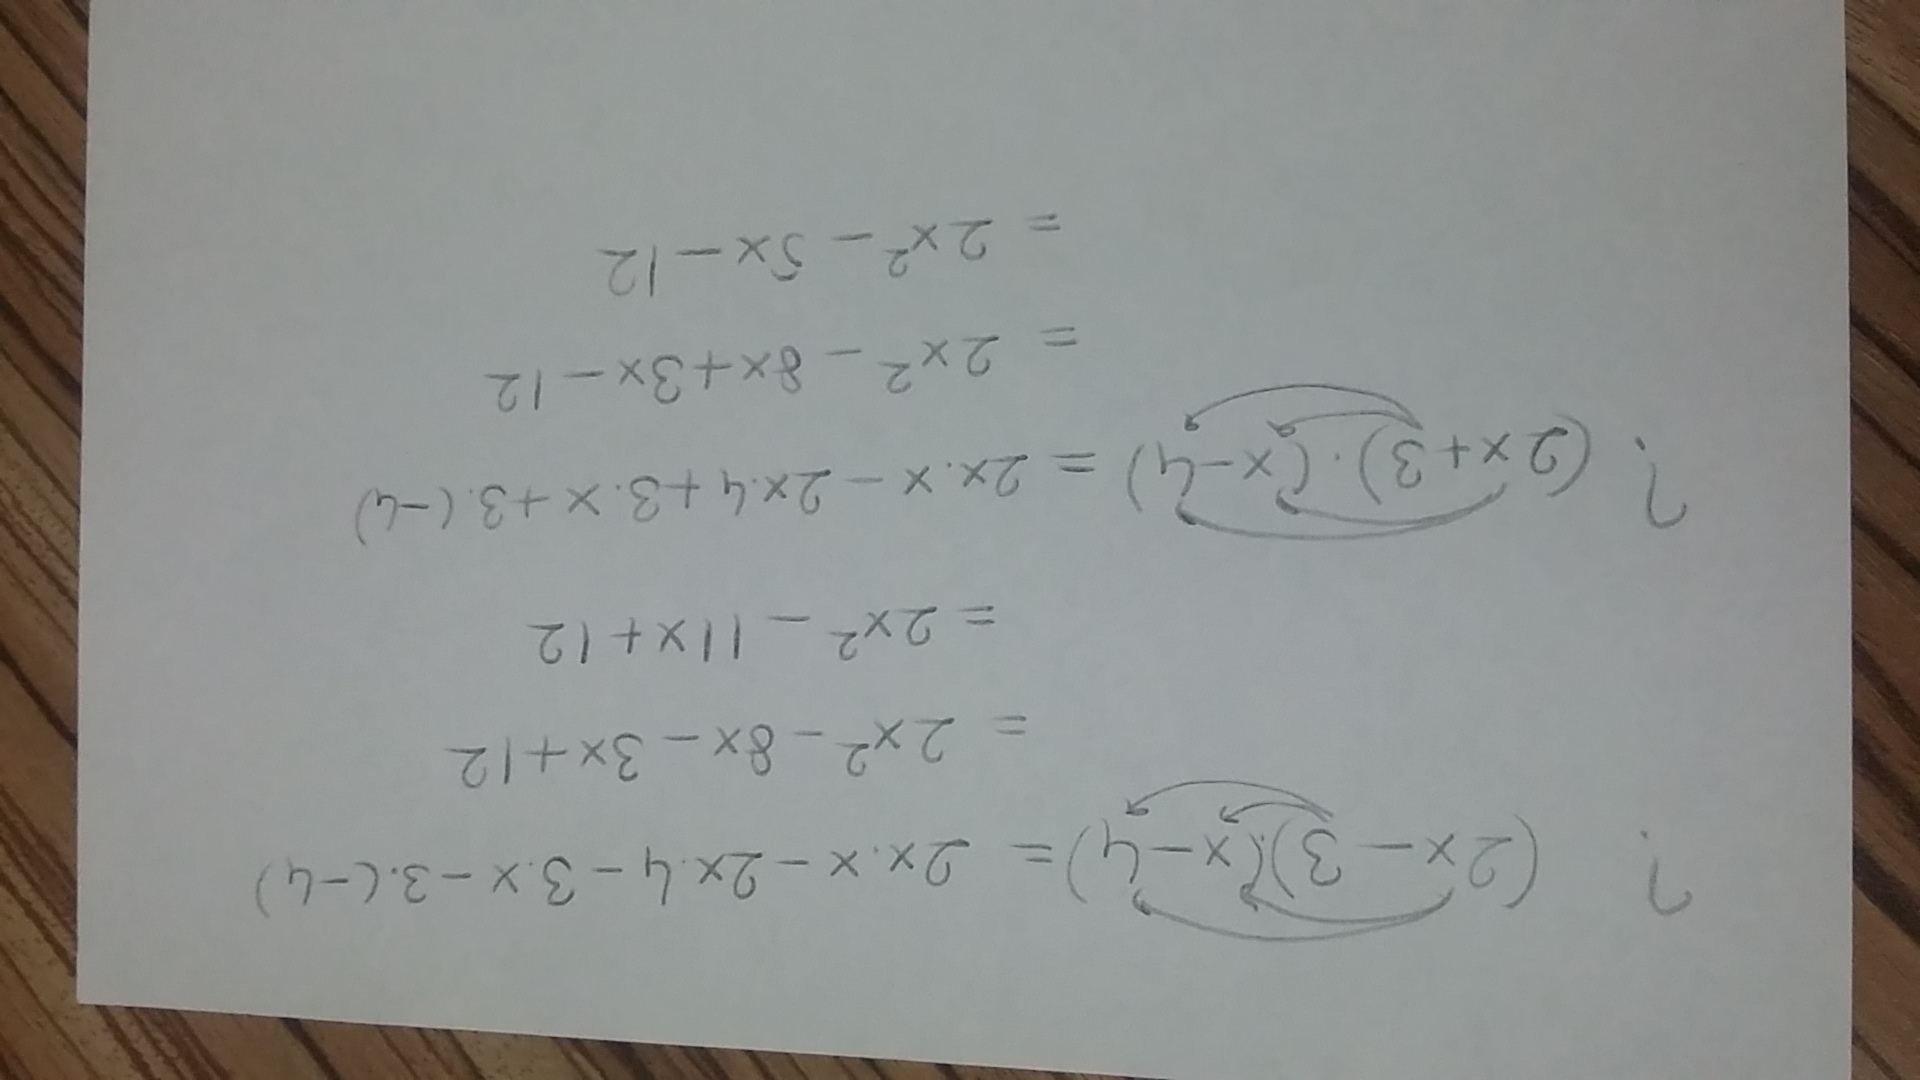 ? (2x-3).(x-4) = 2x.x - 2x.4 - 3.x - 3.(-4)
= 2x² - 8x - 3x + 12
= 2x² - 11x + 12
? (2x+3).(x-4) = 2x.x - 2x.4 + 3.x + 3.(-4)
= 2x² - 8x + 3x - 12
= 2x² - 5x - 12